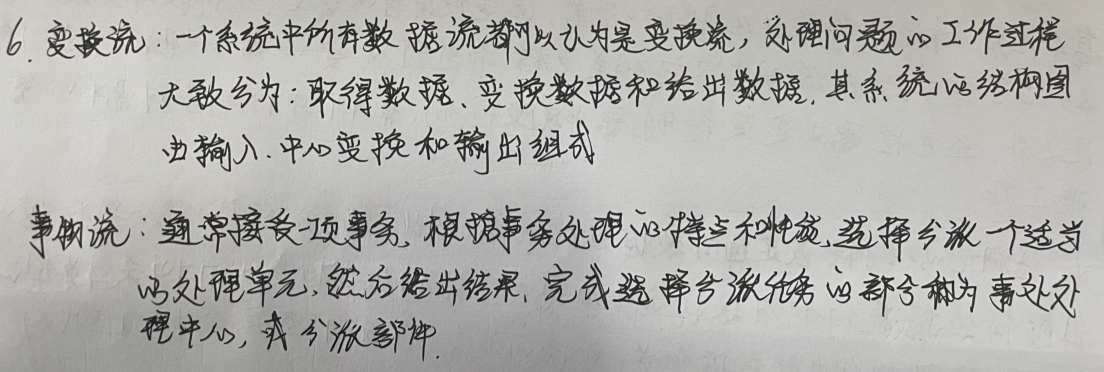 6. 变换流：一个系统中所有数据流都可以认为是变换流，处理问题的工作过程
大致分为：取得数据、变换数据和给出数据，其系统的结构图
由输入、中心变换和输出组成
事物流：通常接受一项事务，根据事务处理的特点和性能，选择分派一个适当
的处理单元，然后给出结果，完成选择分派任务的部分称为事处处
理中心，或分派部件.